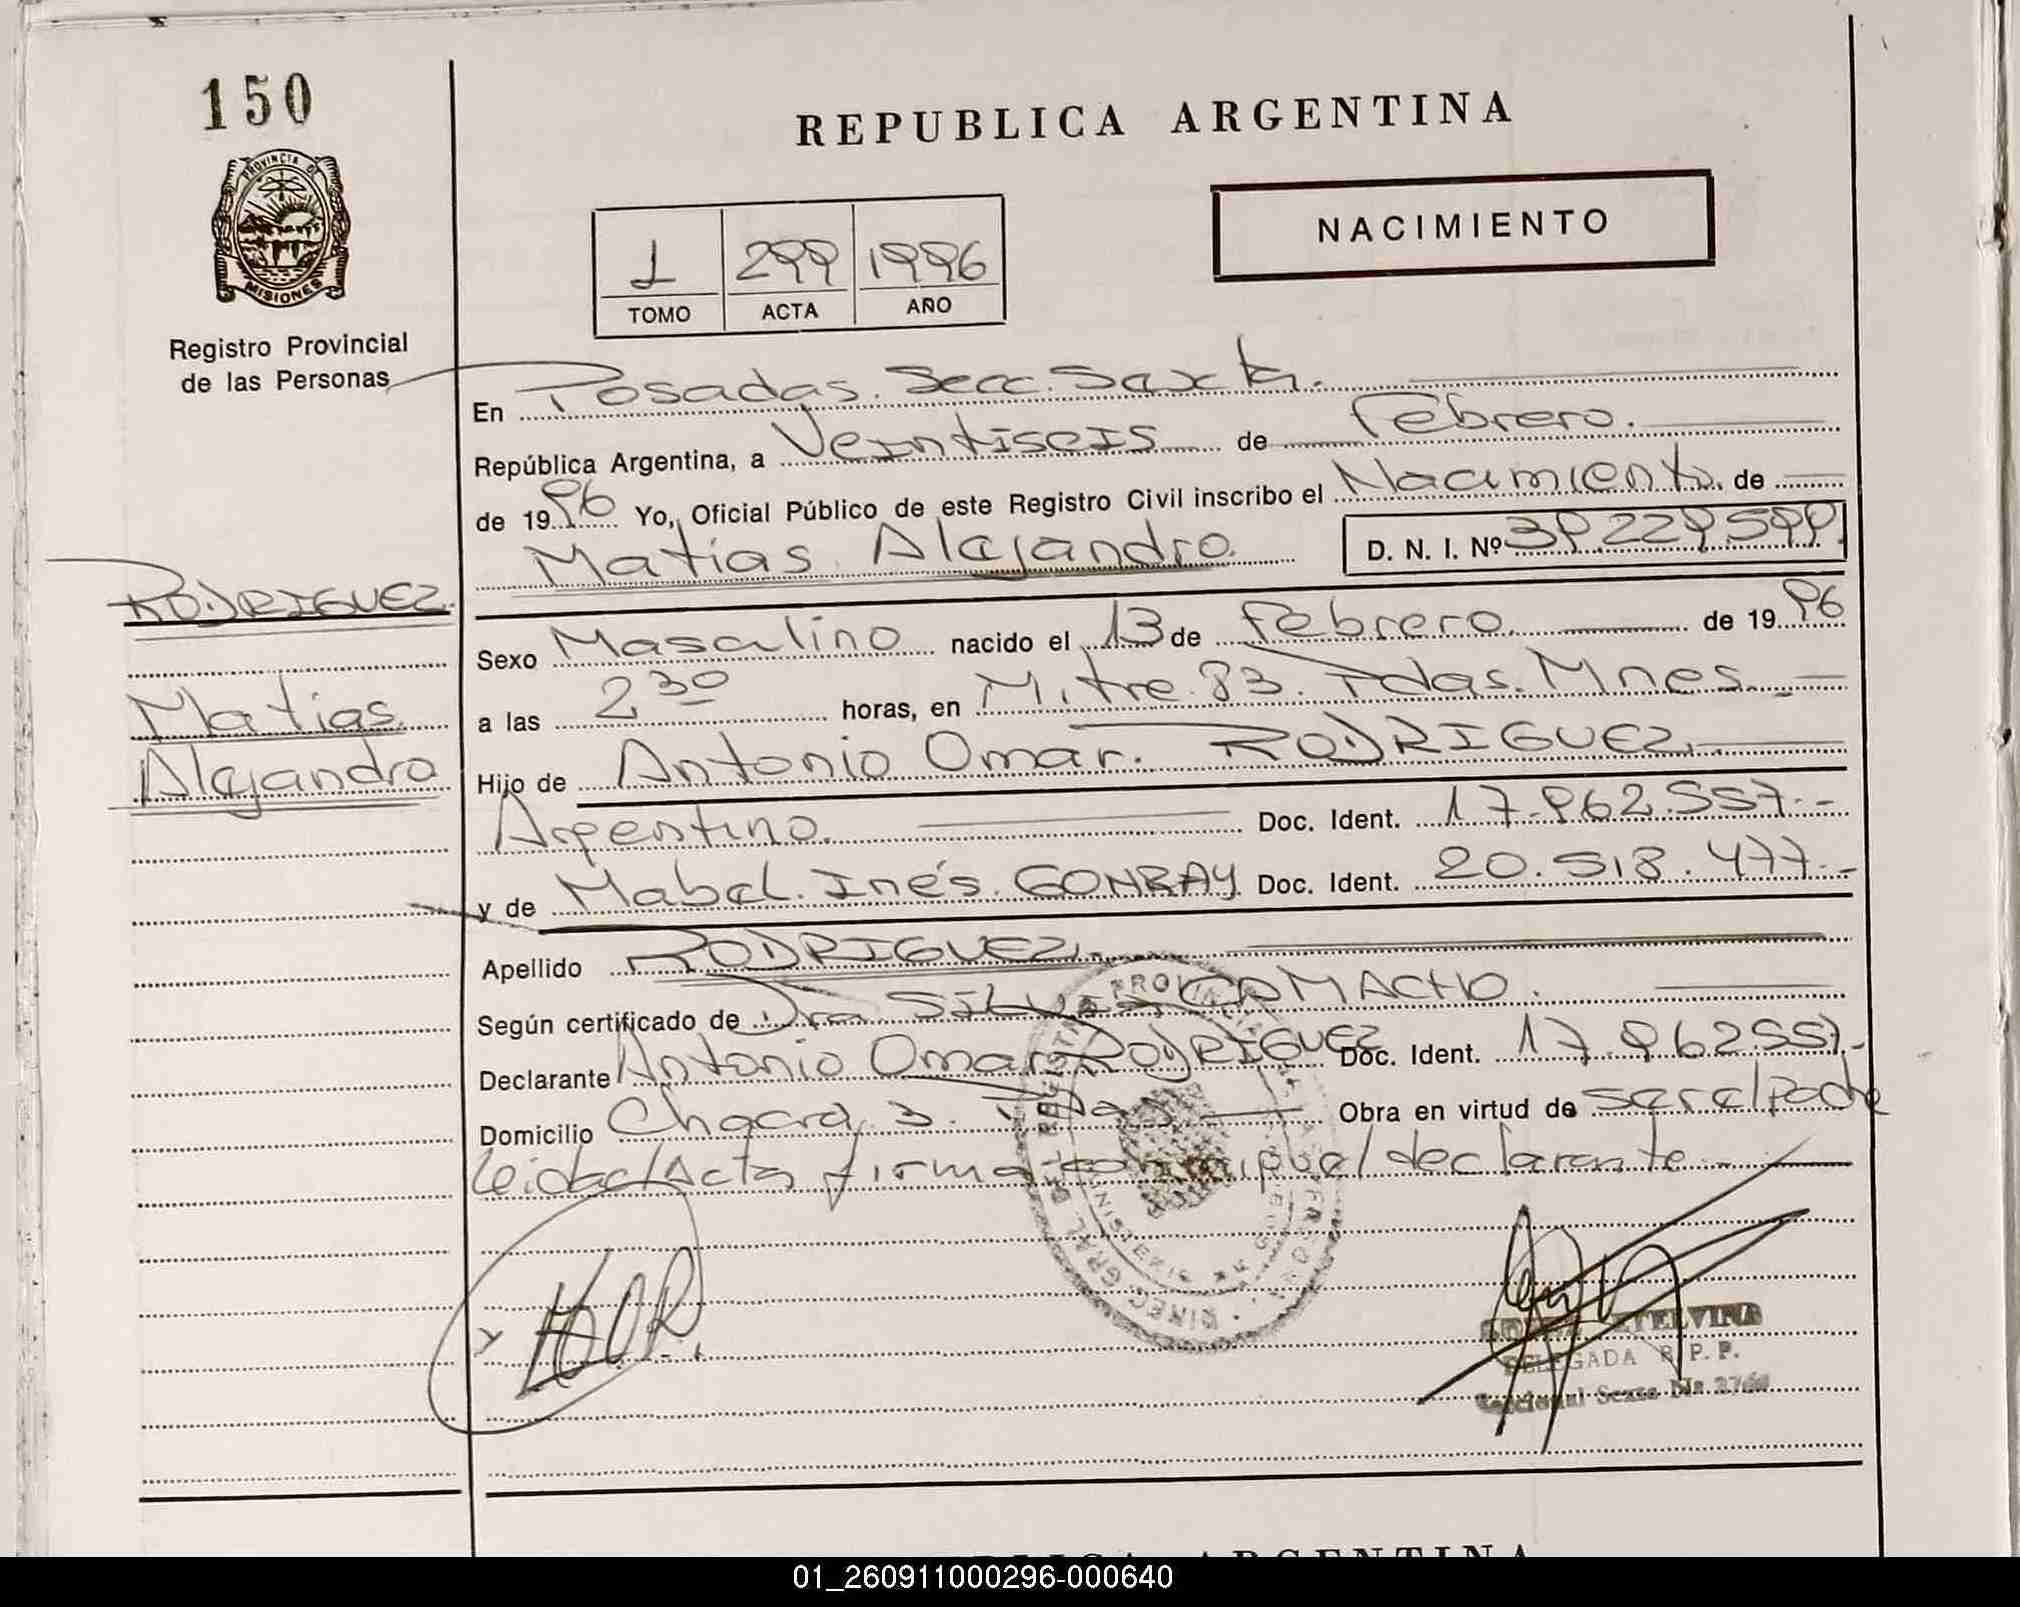 150
REPUBLICA ARGENTINA
NACIMIENTO
1 299 1996
TOMO ACTA AÑO
PROVINCIA DE
MISIONES
Registro Provincial
de las Personas
En Posadas. Secc. Sexta.
República Argentina, a Veintiseis de Febrero.
de 1996 Yo, Oficial Público de este Registro Civil inscribo el Nacimiento de
Matias Alejandro D. N. I. Nº 39.229.599
RODRIGUEZ
Matias
Alejandro
Sexo Masculino nacido el 13 de Febrero. de 1996
a las 2,30 horas, en Mitre 83. Pdas. Mnes.
Hijo de Antonio Omar. RODRIGUEZ
Argentino. Doc. Ident. 17.962.557.-
y de Mabel. Inés. Doc. Ident. 20.518.477.-
Apellido RODRIGUEZ
Según certificado de Dra SILVIA CAMACHO.
Declarante Antonio Omar RODRIGUEZ Doc. Ident. 17.962557.-
Domicilio Chacra 3. Pdas Obra en virtud de ser el padre
leida el Acta firma conmigo el declarante
A.O.R.
ETELVINA
DELEGADA R. P. P.
Seccional Sexta
REPUBLICA ARGENTINA
01_260911000296-000640